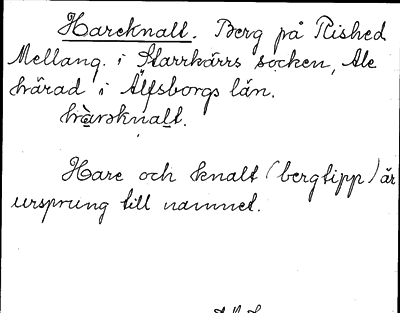 Hareknalt. Berg på Rished
Mellang. i Starrkärrs socken, Ale
härad i Älfsborgs län.
Hare och knalt (bergtipp) är
ursprung till namnet.